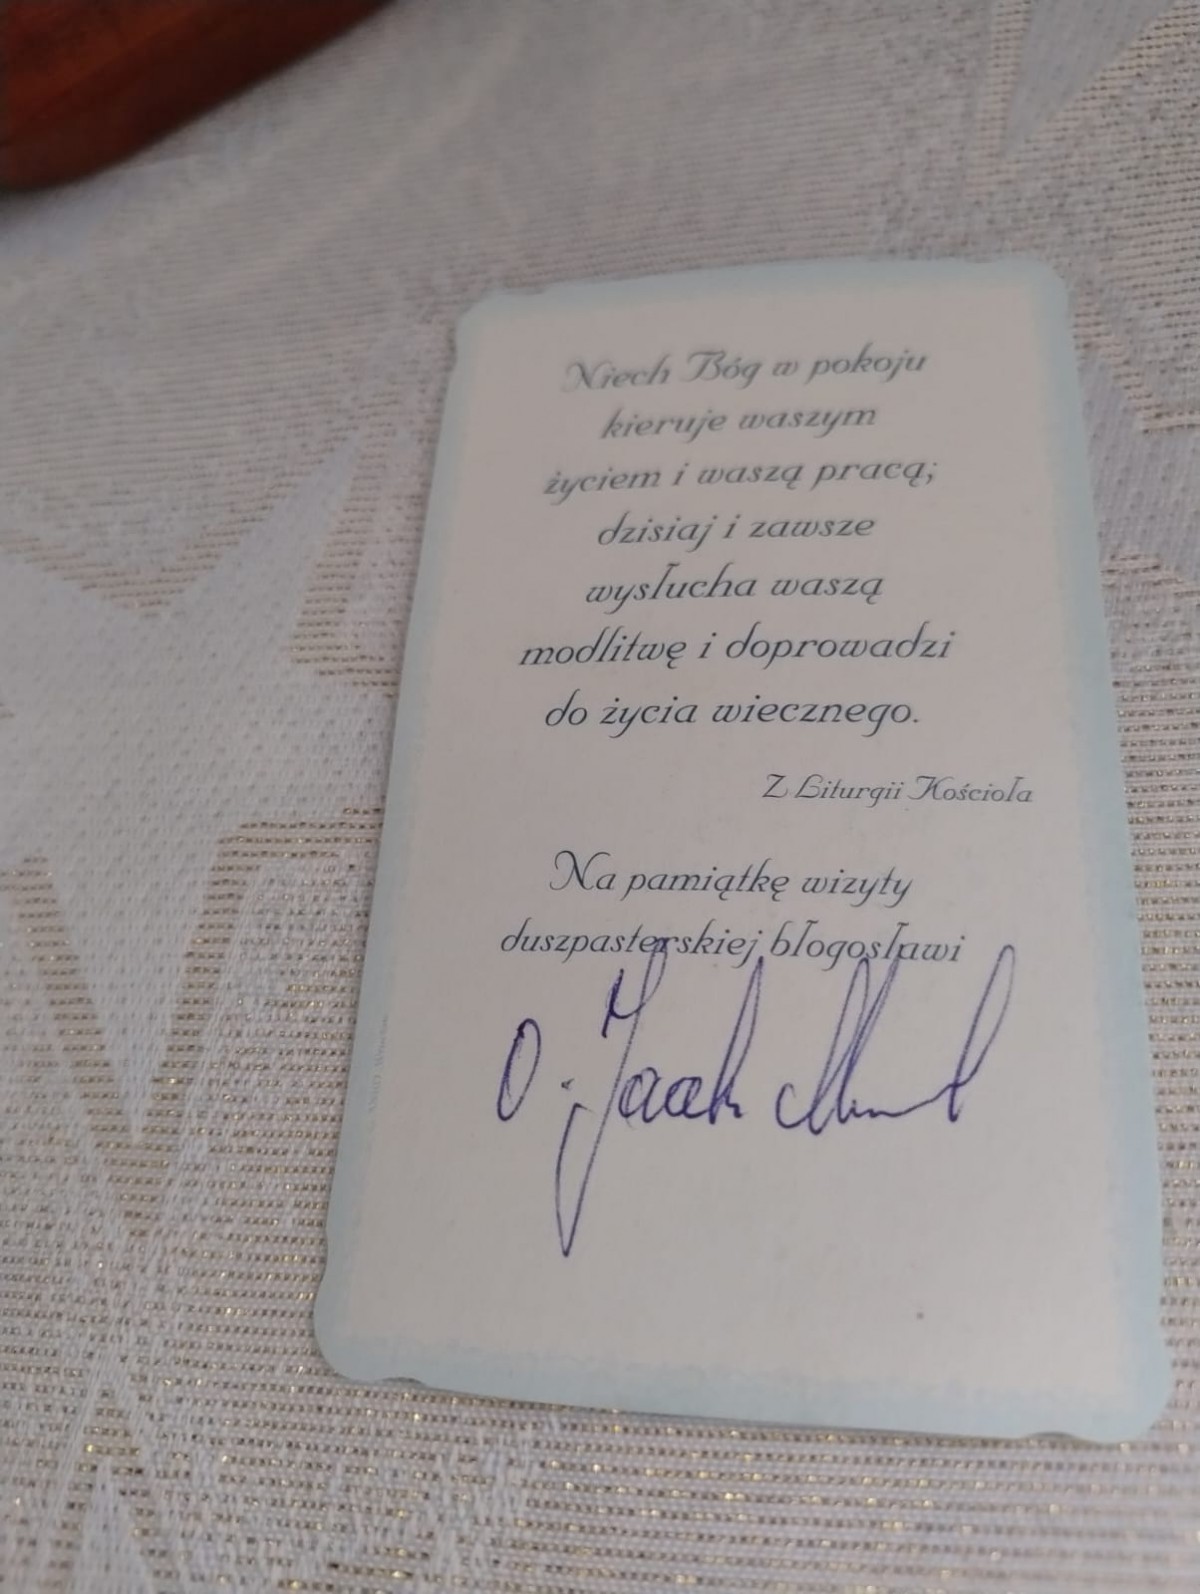 Niech Bóg w pokoju
kieruje waszym
życiem i waszą pracą;
dzisiaj i zawsze
wysłucha waszą
modlitwę i doprowadzi
do życia wiecznego.
Z Liturgii Kościoła
Na pamiątkę wizyty
duszpasterskiej błogosławi
O. Jacek